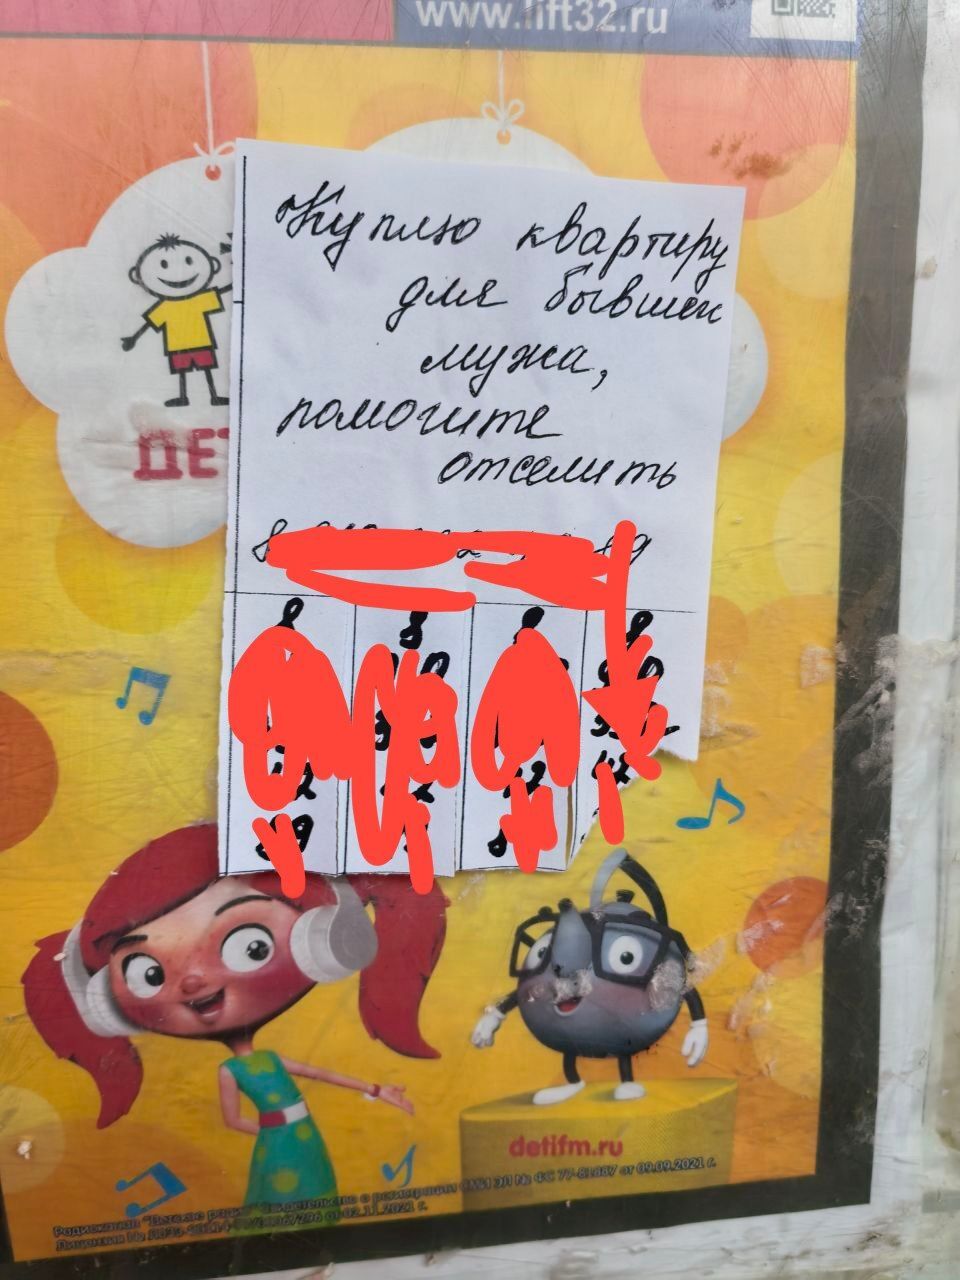 www.lift32.ru
Куплю квартиру
для бывшего
мужа,
помогите
отселить
ДЕТ
detifm.ru
Радиоканал "Детское радио" Свидетельство о регистрации СМИ ЭЛ № ФС 77-81887 от 09.09.2021 г.
от 02.11.2021 г.